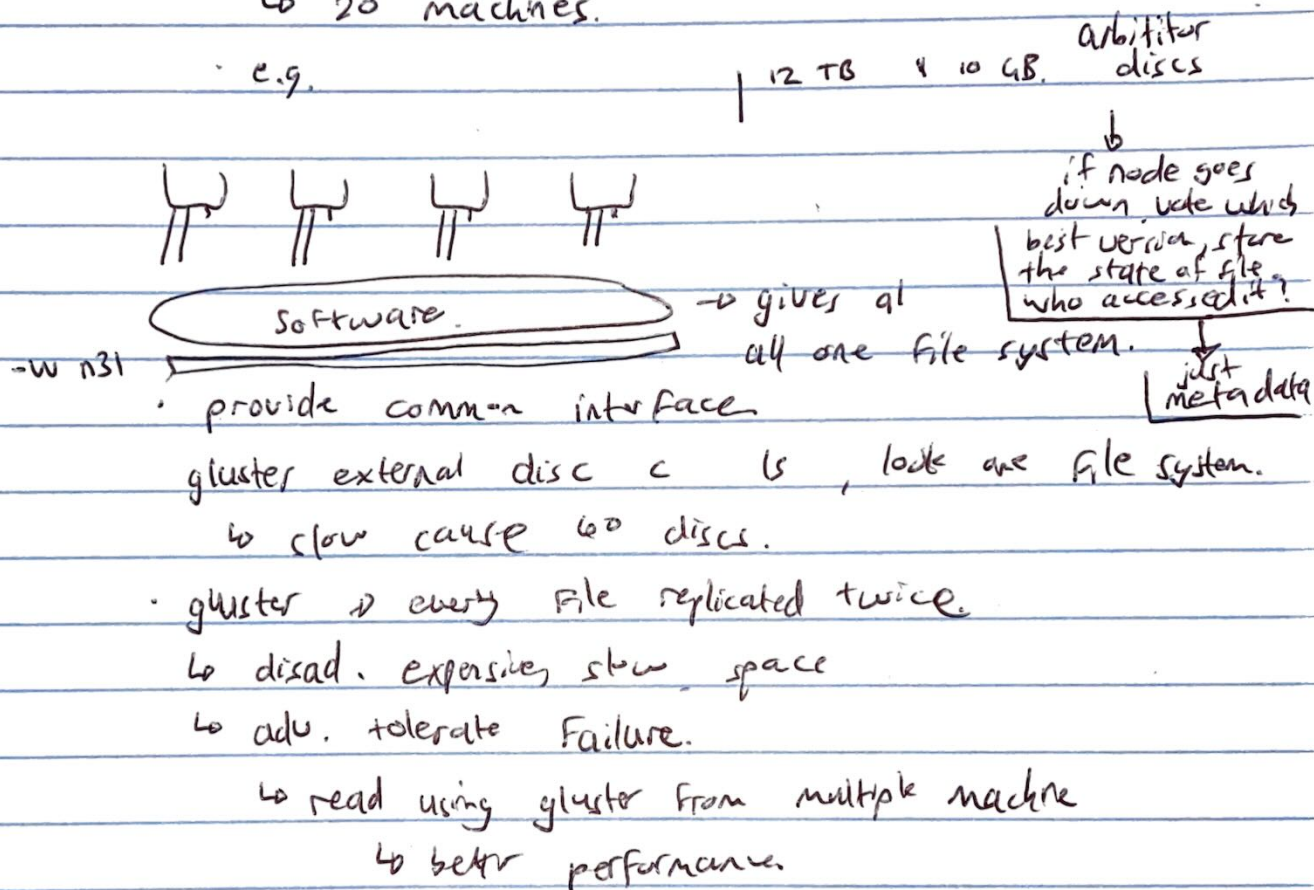 ↳ 20 machines.
· e.g.
| 12 TB & 10 GB.
arbititor
discs
↓
if node goes
down vote which
best version, store
the state of file,
who accessed it?
↓
just
metadata
software.
→ gives al
all one file system.
-w n31
· provide common interface
gluster external disc c ls, look one file system.
↳ slow cause 60 discs.
· gluster → every file replicated twice.
↳ disad. expensive, slow space
↳ adv. tolerate failure.
↳ read using gluster from multiple machne
↳ better performance.